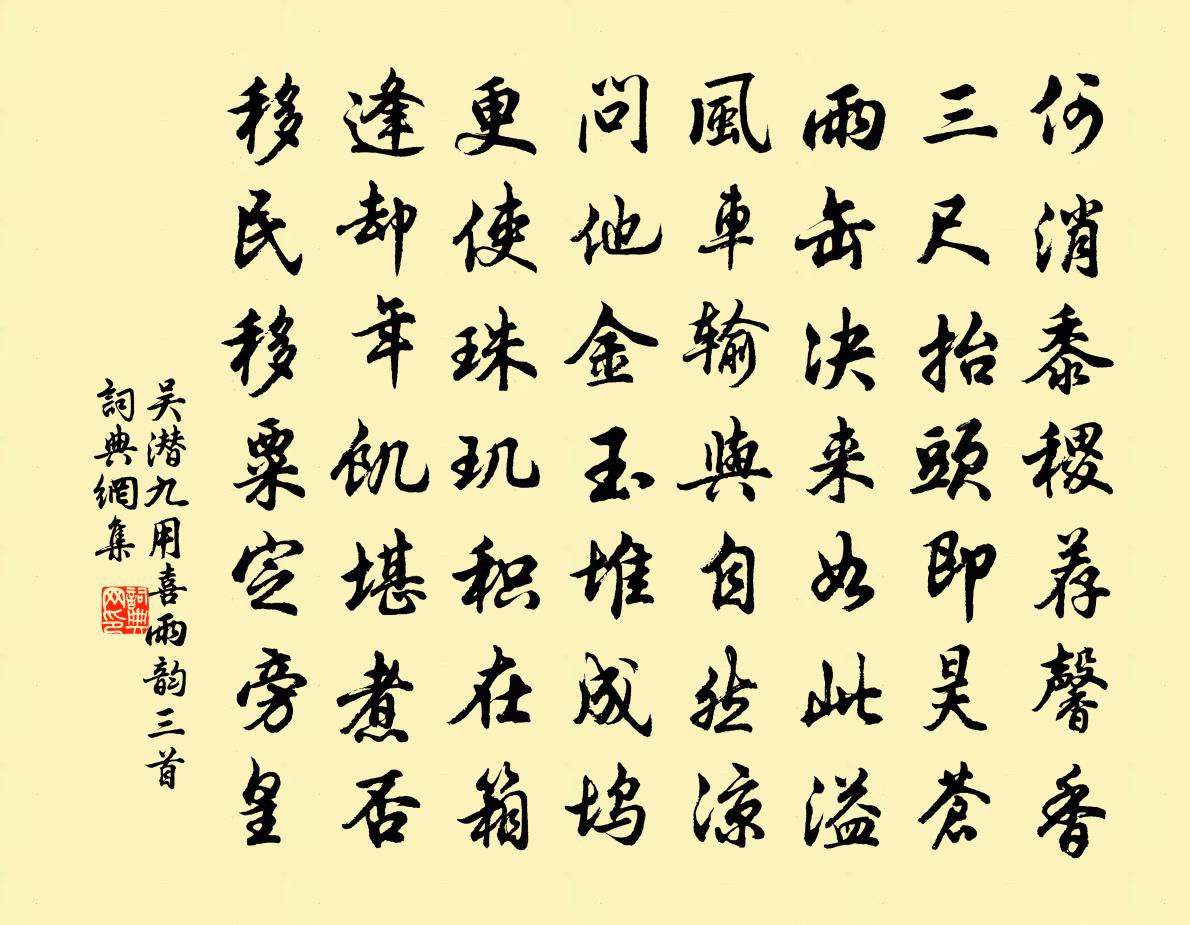 何消黍稷荐馨香
三尺抬頭即昊蒼
雨缶决来如此溢
風車输與自然凉
問他金玉堆成坞
更使珠玑积在箱
逢却年饥堪煮否
移民移粟定旁皇
吴潜九用喜雨韵三首
詞典網集
詞典网印